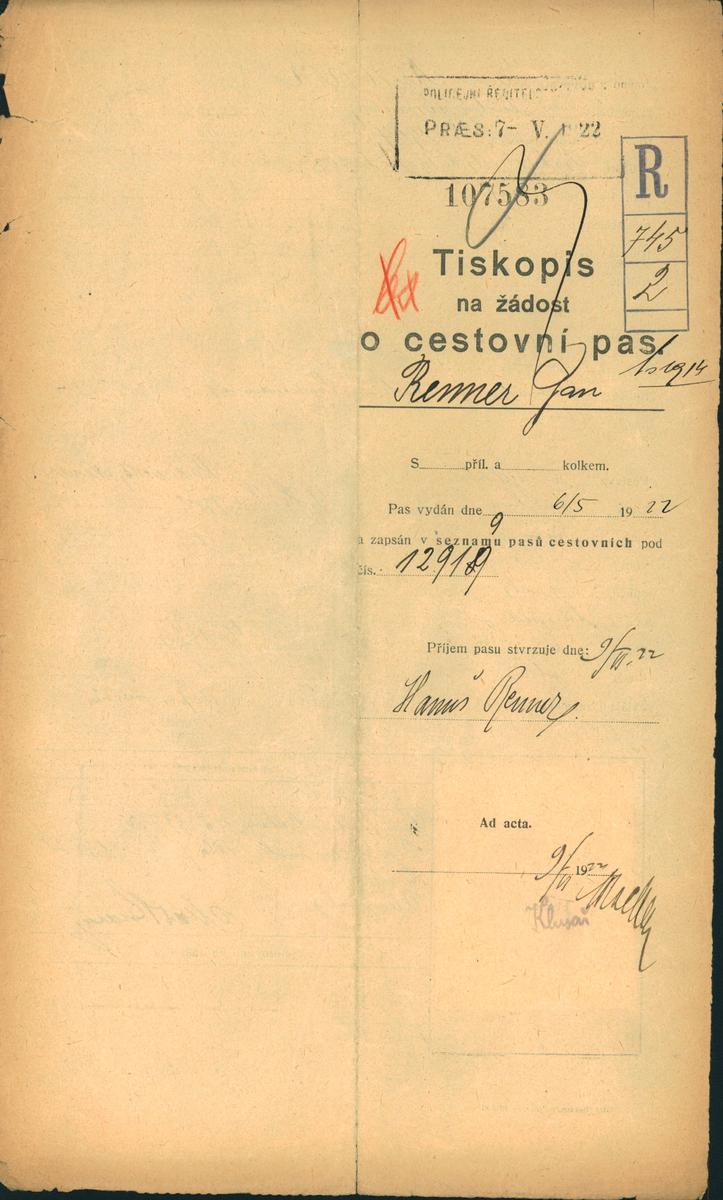 POLICEJNÍ ŘEDITELS
PRÆS: 7- V. 1922
107583
R
745
2
Tiskopis
na žádost
o cestovní pas.
Renner Jan
S........příl. a........kolkem.
Pas vydán dne 6/5 1922
9
a zapsán v seznamu pasů cestovních pod
čís. 12919
Příjem pasu stvrzuje dne: 9/VI. 22
Hanuš Renner
Ad acta.
9/VI 1922
Klusař